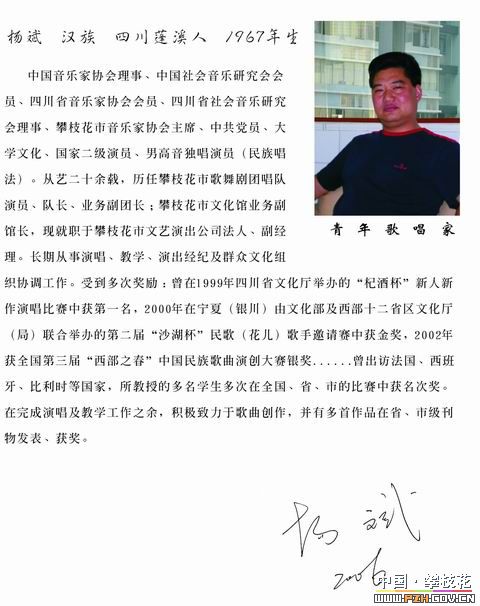 杨斌 汉族 四川蓬溪人 1967年生
中国音乐家协会理事、中国社会音乐研究会会
员、四川省音乐家协会会员、四川省社会音乐研究
会理事、攀枝花市音乐家协会主席、中共党员、大
学文化、国家二级演员、男高音独唱演员（民族唱
法）。从艺二十余载，历任攀枝花市歌舞剧团唱队
演员、队长、业务副团长；攀枝花市文化馆业务副
馆长，现就职于攀枝花市文艺演出公司法人、副经
理。长期从事演唱、教学、演出经纪及群众文化组
织协调工作。受到多次奖励：曾在1999年四川省文化厅举办的“杞酒杯”新人新
作演唱比赛中获第一名，2000年在宁夏（银川）由文化部及西部十二省区文化厅
（局）联合举办的第二届“沙湖杯”民歌（花儿）歌手邀请赛中获金奖，2002年
获全国第三届“西部之春”中国民族歌曲演创大赛银奖......曾出访法国、西班
牙、比利时等国家，所教授的多名学生多次在全国、省、市的比赛中获名次奖。
在完成演唱及教学工作之余，积极致力于歌曲创作，并有多首作品在省、市级刊
物发表、获奖。
青年歌唱家
杨斌
2006
中国·攀枝花
WWW.PZH.GOV.CN